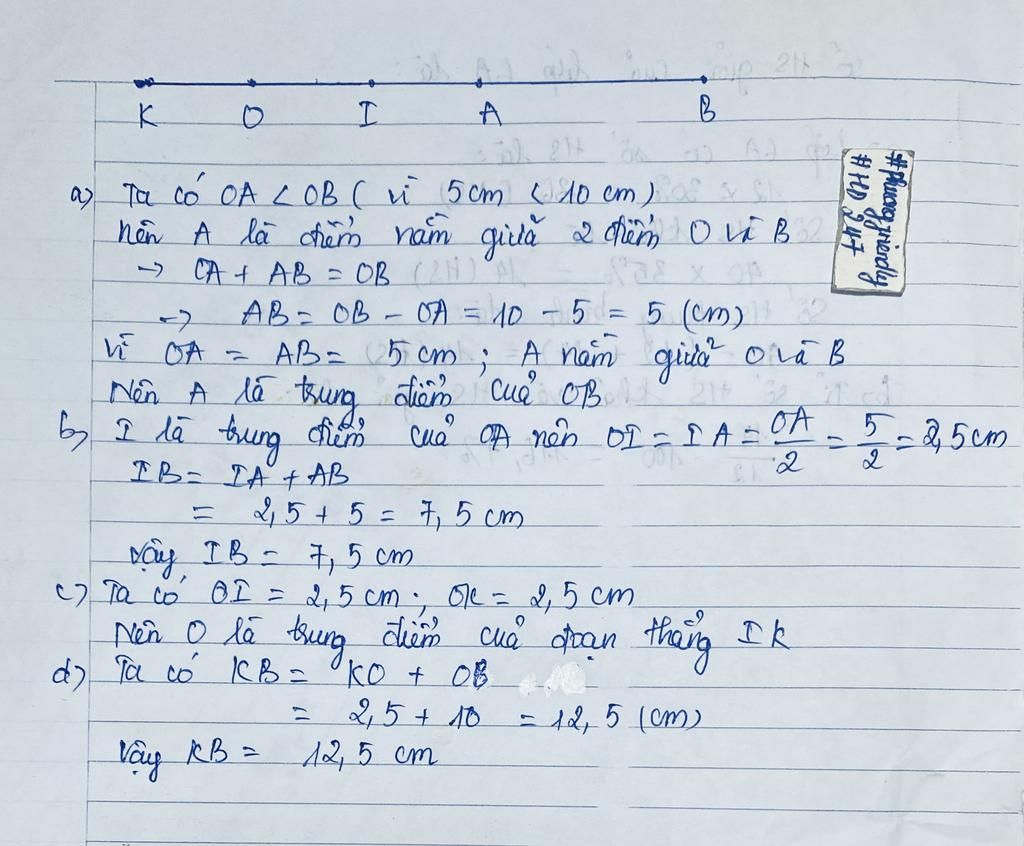 K O I A B
#phuongfriendly
#HD247
a) Ta có OA < OB ( vì 5cm < 10 cm)
nên A là điểm nằm giữa 2 điểm O và B
→ OA + AB = OB
→ AB = OB - OA = 10 - 5 = 5 (cm)
Vì OA = AB = 5 cm ; A nằm giữa O và B
Nên A là trung điểm của OB
b) I là trung điểm của OA nên OI = IA = OA/2 = 5/2 = 2,5 cm
IB = IA + AB
= 2,5 + 5 = 7,5 cm
Vậy IB = 7,5 cm
c) Ta có OI = 2,5 cm ; OK = 2,5 cm
Nên O là trung điểm của đoạn thẳng IK
d) Ta có KB = KO + OB
= 2,5 + 10 = 12,5 (cm)
Vậy KB = 12,5 cm